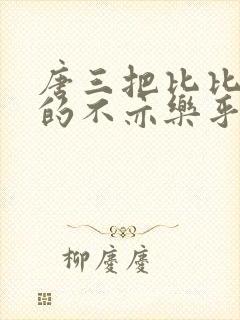 唐三把比比
的不亦樂乎
柳慶慶